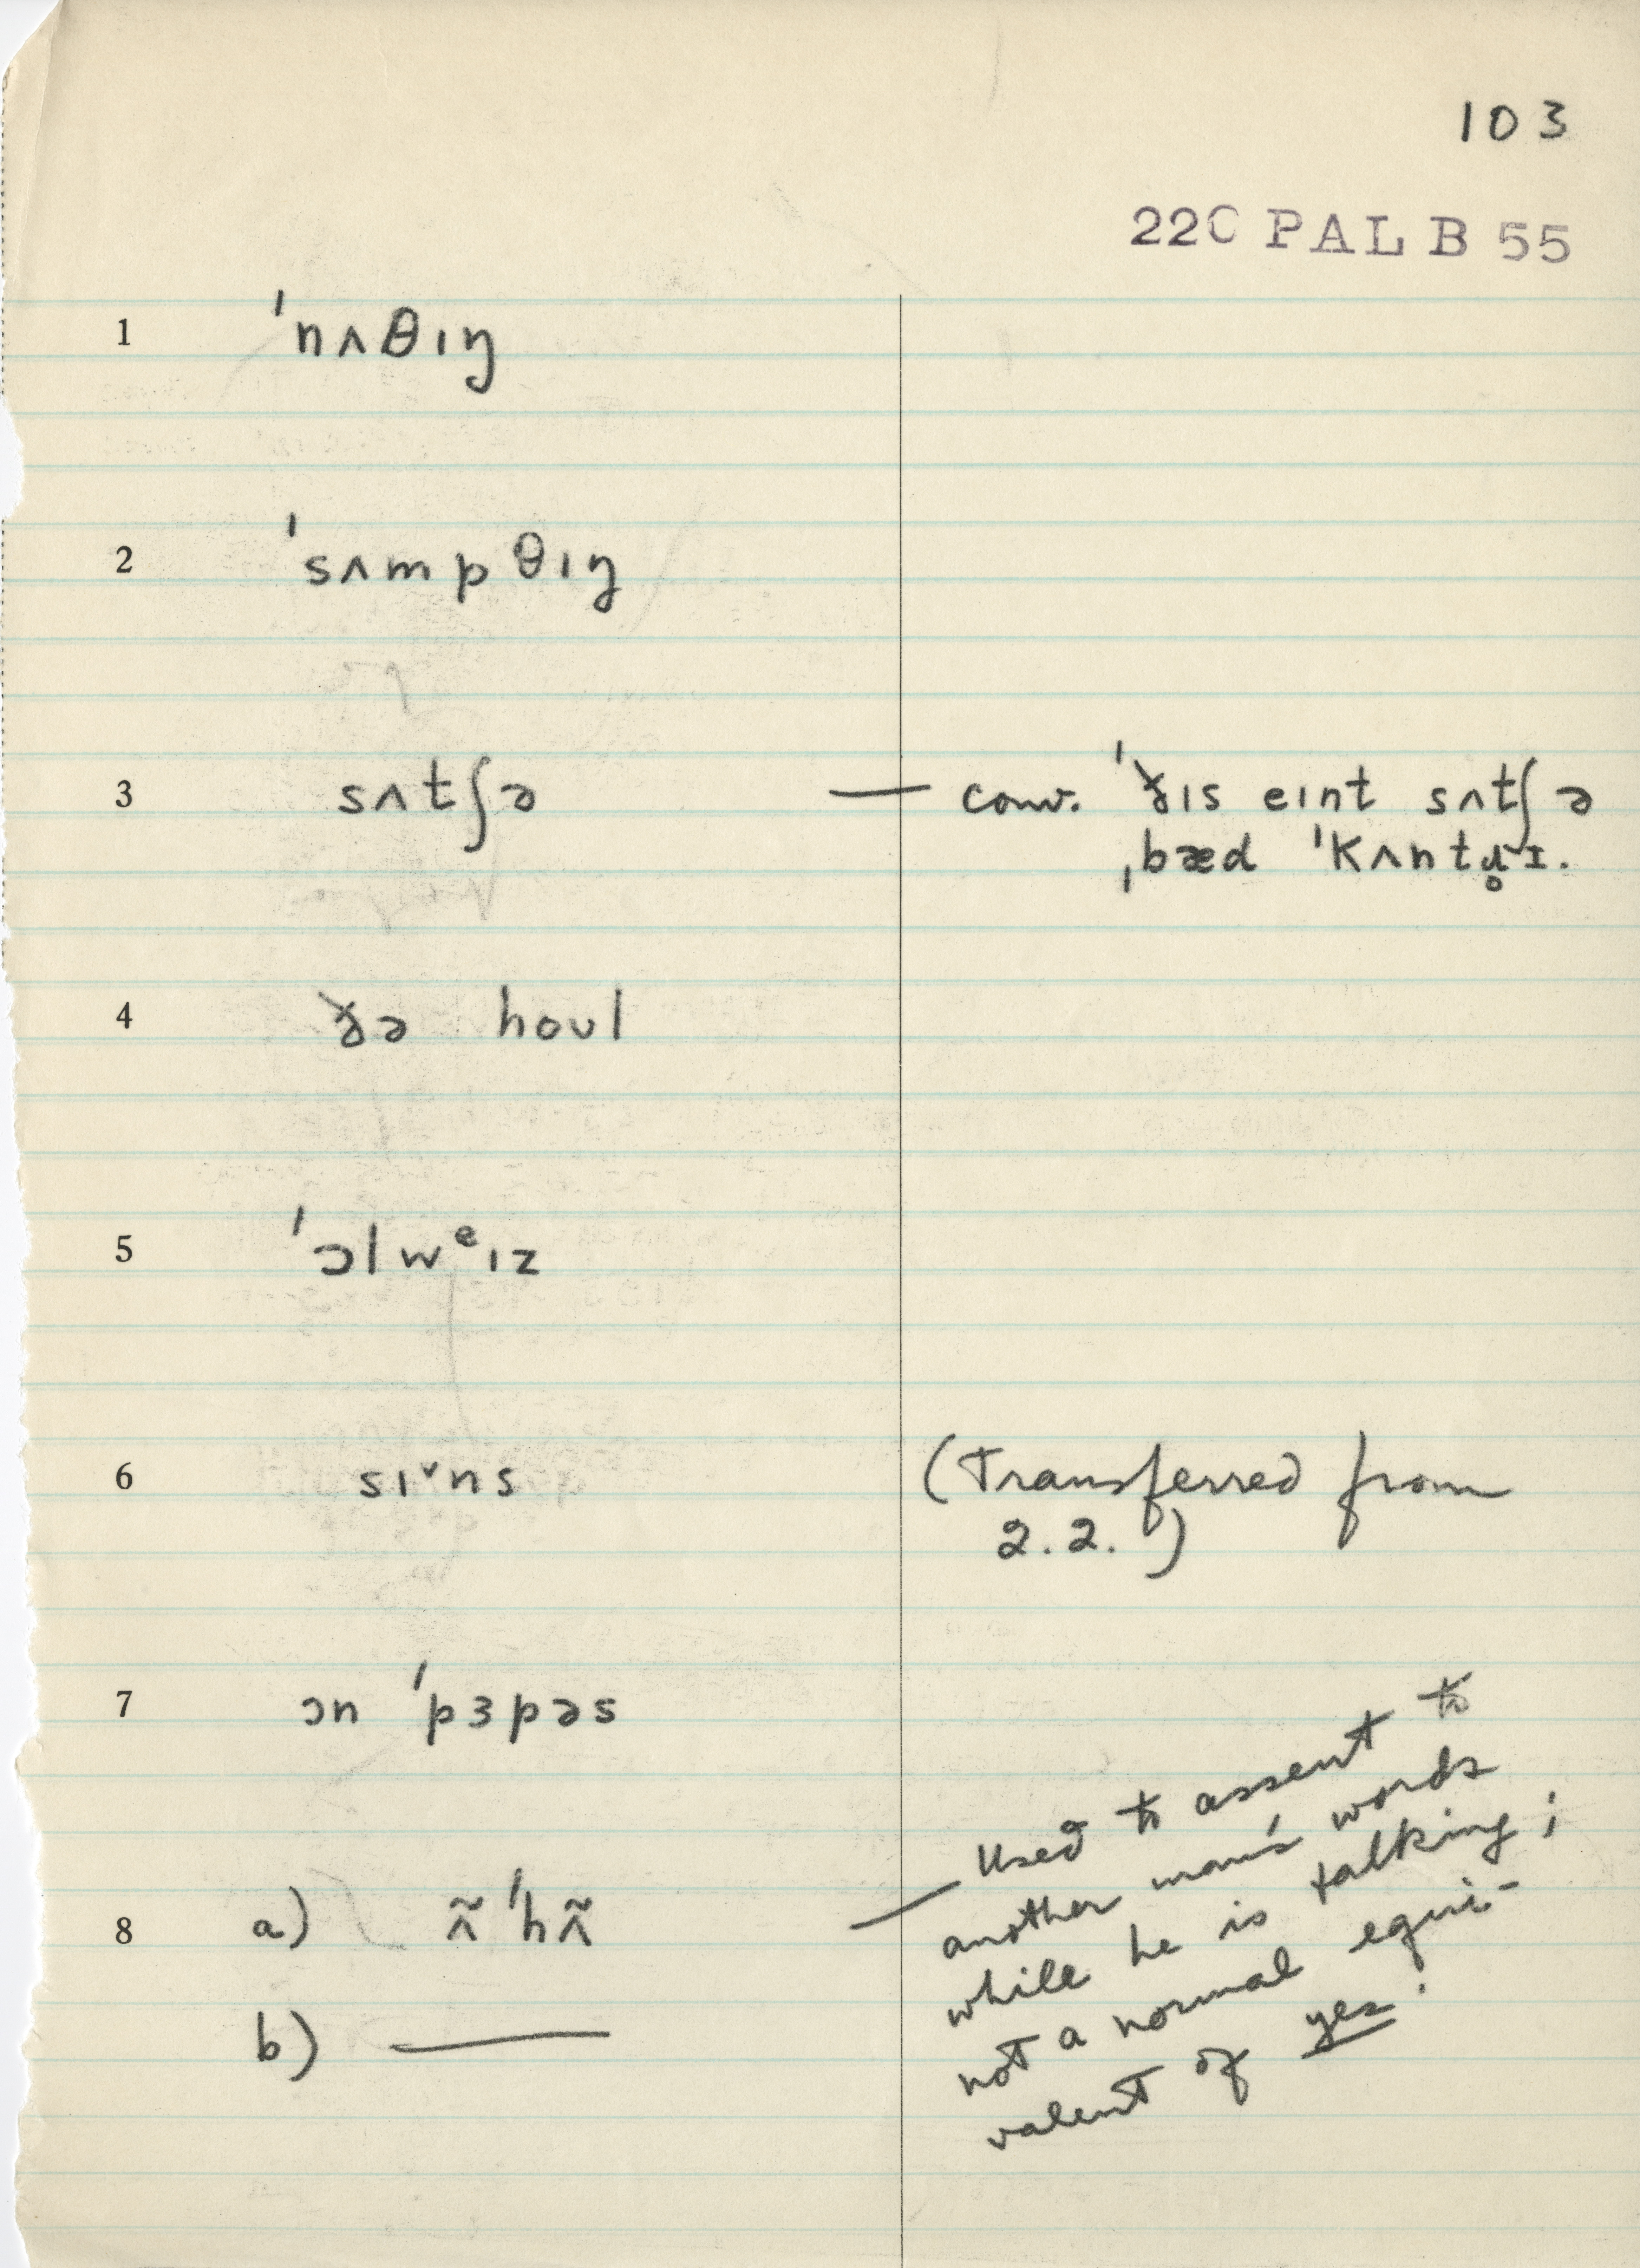 103
22C PAL B 55
1 ˈnʌθɪŋ
2 ˈsʌmpθɪŋ
3 sʌtʃə — conv. ˈðɪs eɪnt sʌtʃə
ˌbæd ˈkʌntɹ̥ɪ.
4 ðə hoʊl
5 ˈɔlwᵉɪz
6 sɪ˅ns (Transferred from
2.2.)
7 ɔn ˈpɜpəs
8 a) ʌ̃ˈhʌ̃ — Used to assent to
another man's words
while he is talking;
not a normal equi-
valent of yes.
b) —